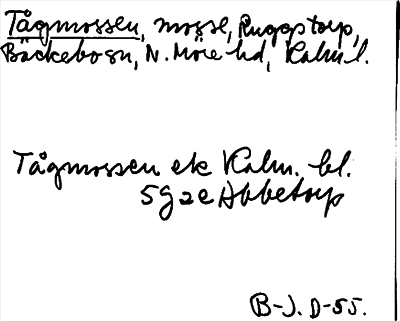 Tågmossen, mosse, Ruggstorp,
Bäckebo sn, N. Möre hd, Kalm l.
Tågmossen ek Kalm. bl.
5g2e Abbetorp
B-J. D-55.